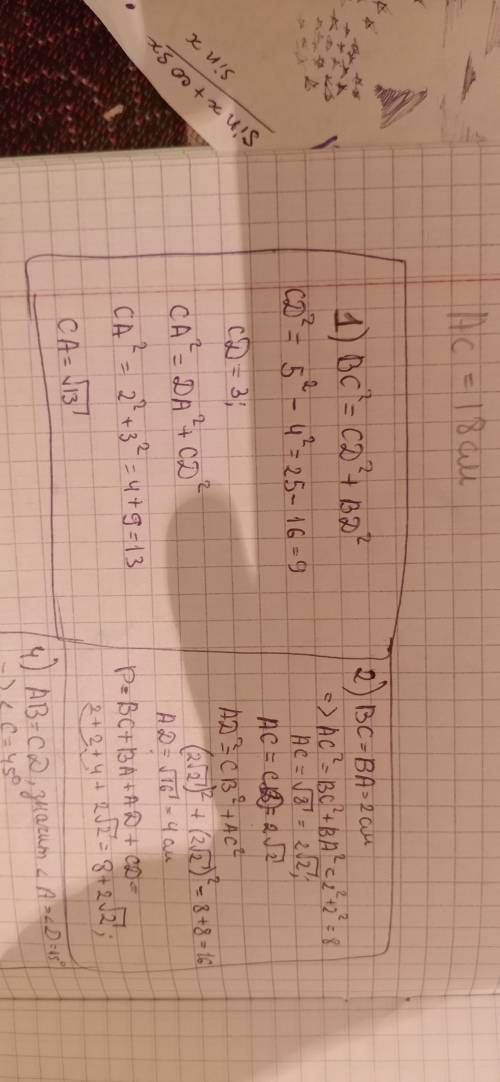 sin x + cos x
sin x
AC = 18 см
1) BC² = CD² + BD²
CD² = 5² - 4² = 25 - 16 = 9
CD = 3;
CA² = DA² + CD²
CA² = 2² + 3² = 4 + 9 = 13
CA = √13
2) BC = BA = 2 см
=> AC² = BC² + BA² = 2² + 2² = 8
AC = √8 = 2√2;
AC = CD = 2√2
AD² = CB² + AC²
(2√2)² + (2√2)² = 8 + 8 = 16
AD = √16 = 4 см
P = BC + BA + AD + CD =
2 + 2 + 4 + 2√2 = 8 + 2√2;
4) AB = CD, значит ∠A = ∠D = 45°
=> ∠C = 45°